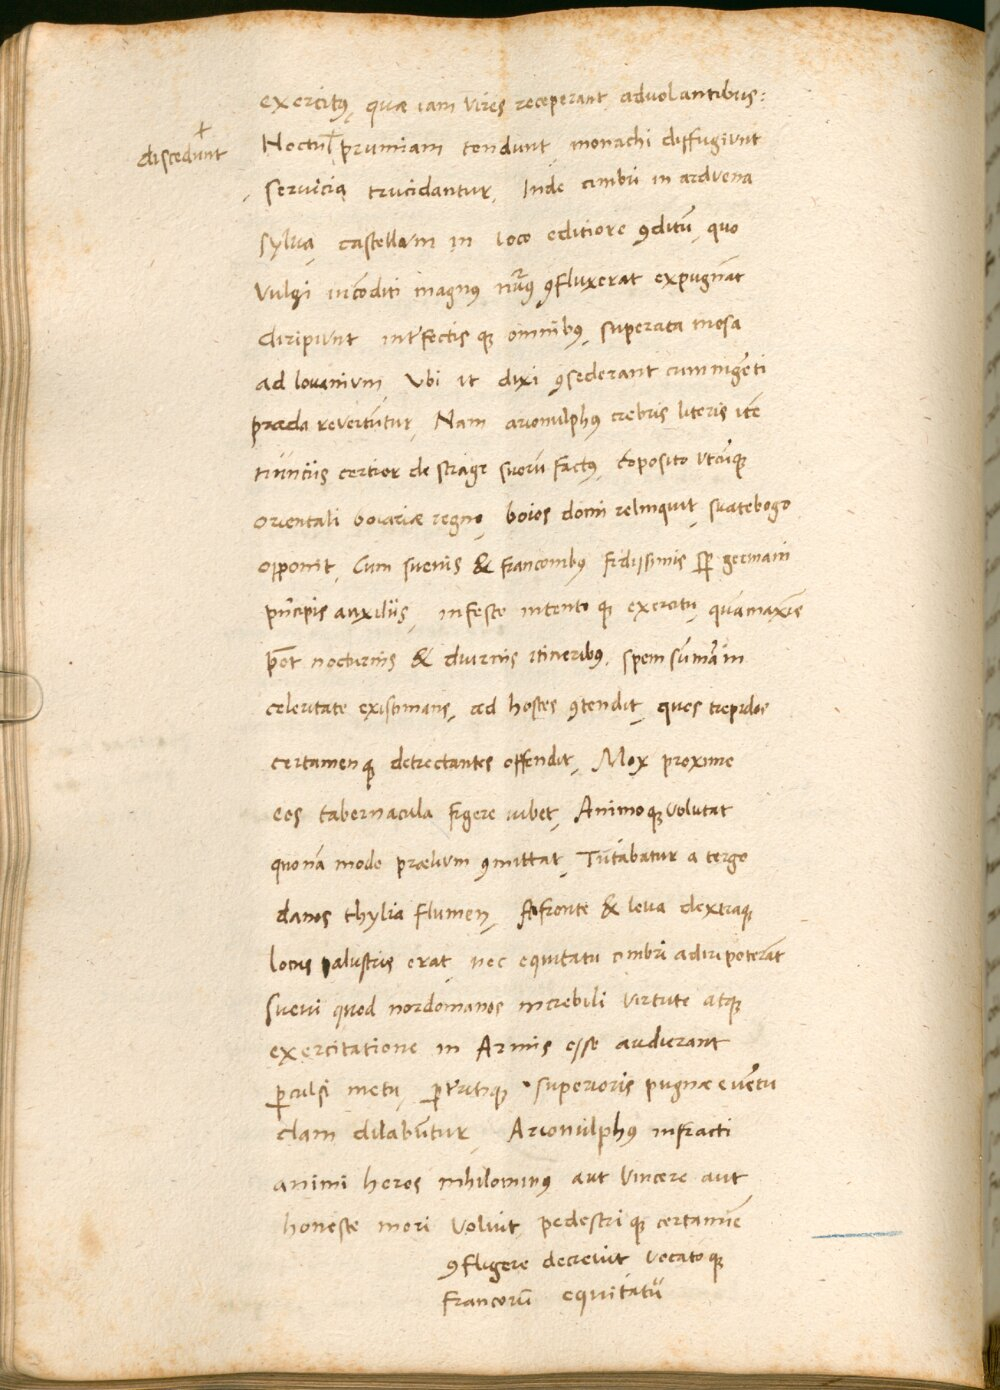 exercitꝰ, quæ iam vires receperant advolantibus:
+
discedunt
Noctu prumiam tendunt, monachi diffugiunt
servicia trucidantur, Inde cimbri in ardvena
sylva, castellum in loco editiore ꝯditū, quo
vulgi incōditi magnꝰ nūerꝰ ꝯfluxerat expugnāt
diripiunt interfectis qꝫ omnibꝰ, superata mosa
ad lovanivm Vbi vt dixi ꝯsederant cum ingēti
præda revertūtur, Nam arionulphꝰ crebris literis itē
nūnciis certior de strage suorū factꝰ, cōposito vtcūqꝫ
orientali boiariæ regno, boios domi relinquit, svatebogo
opponit, Cum suevis & franconibꝰ fidissimis sꝑ germani
pn̄cipis auxiliis, infesto intento qꝫ exercitu, quam maxīs
pōt nocturnis & diurnis itineribꝰ, spem sūmā in
celeritate existimans, ad hostes ꝯtendit, quos trepidos
certamenqꝫ detrectantes offendit, Mox proxime
eos tabernacula figere iubet, Animoqꝫ volutat
quonā modo prælium ꝯmittat, Tūtabatur a tergo
danos thylia flumen, A fronte & leva dextraqꝫ
locus palustris erat, nec equitatu cimbri adiri poterāt
suevi quod nordomanos increbili virtute atqꝫ
exercitatione in Armis esse audierant
ꝑculsi metu, ꝑterritiqꝫ superioris pugnæ evētu
clam dilabūtur, Arionulphꝰ infracti
animi heros nihilominꝰ aut vincere aut
honeste mori voluit, pedestri qꝫ certamīe
ꝯfligere decrevit vocatoqꝫ
francorū equitatū